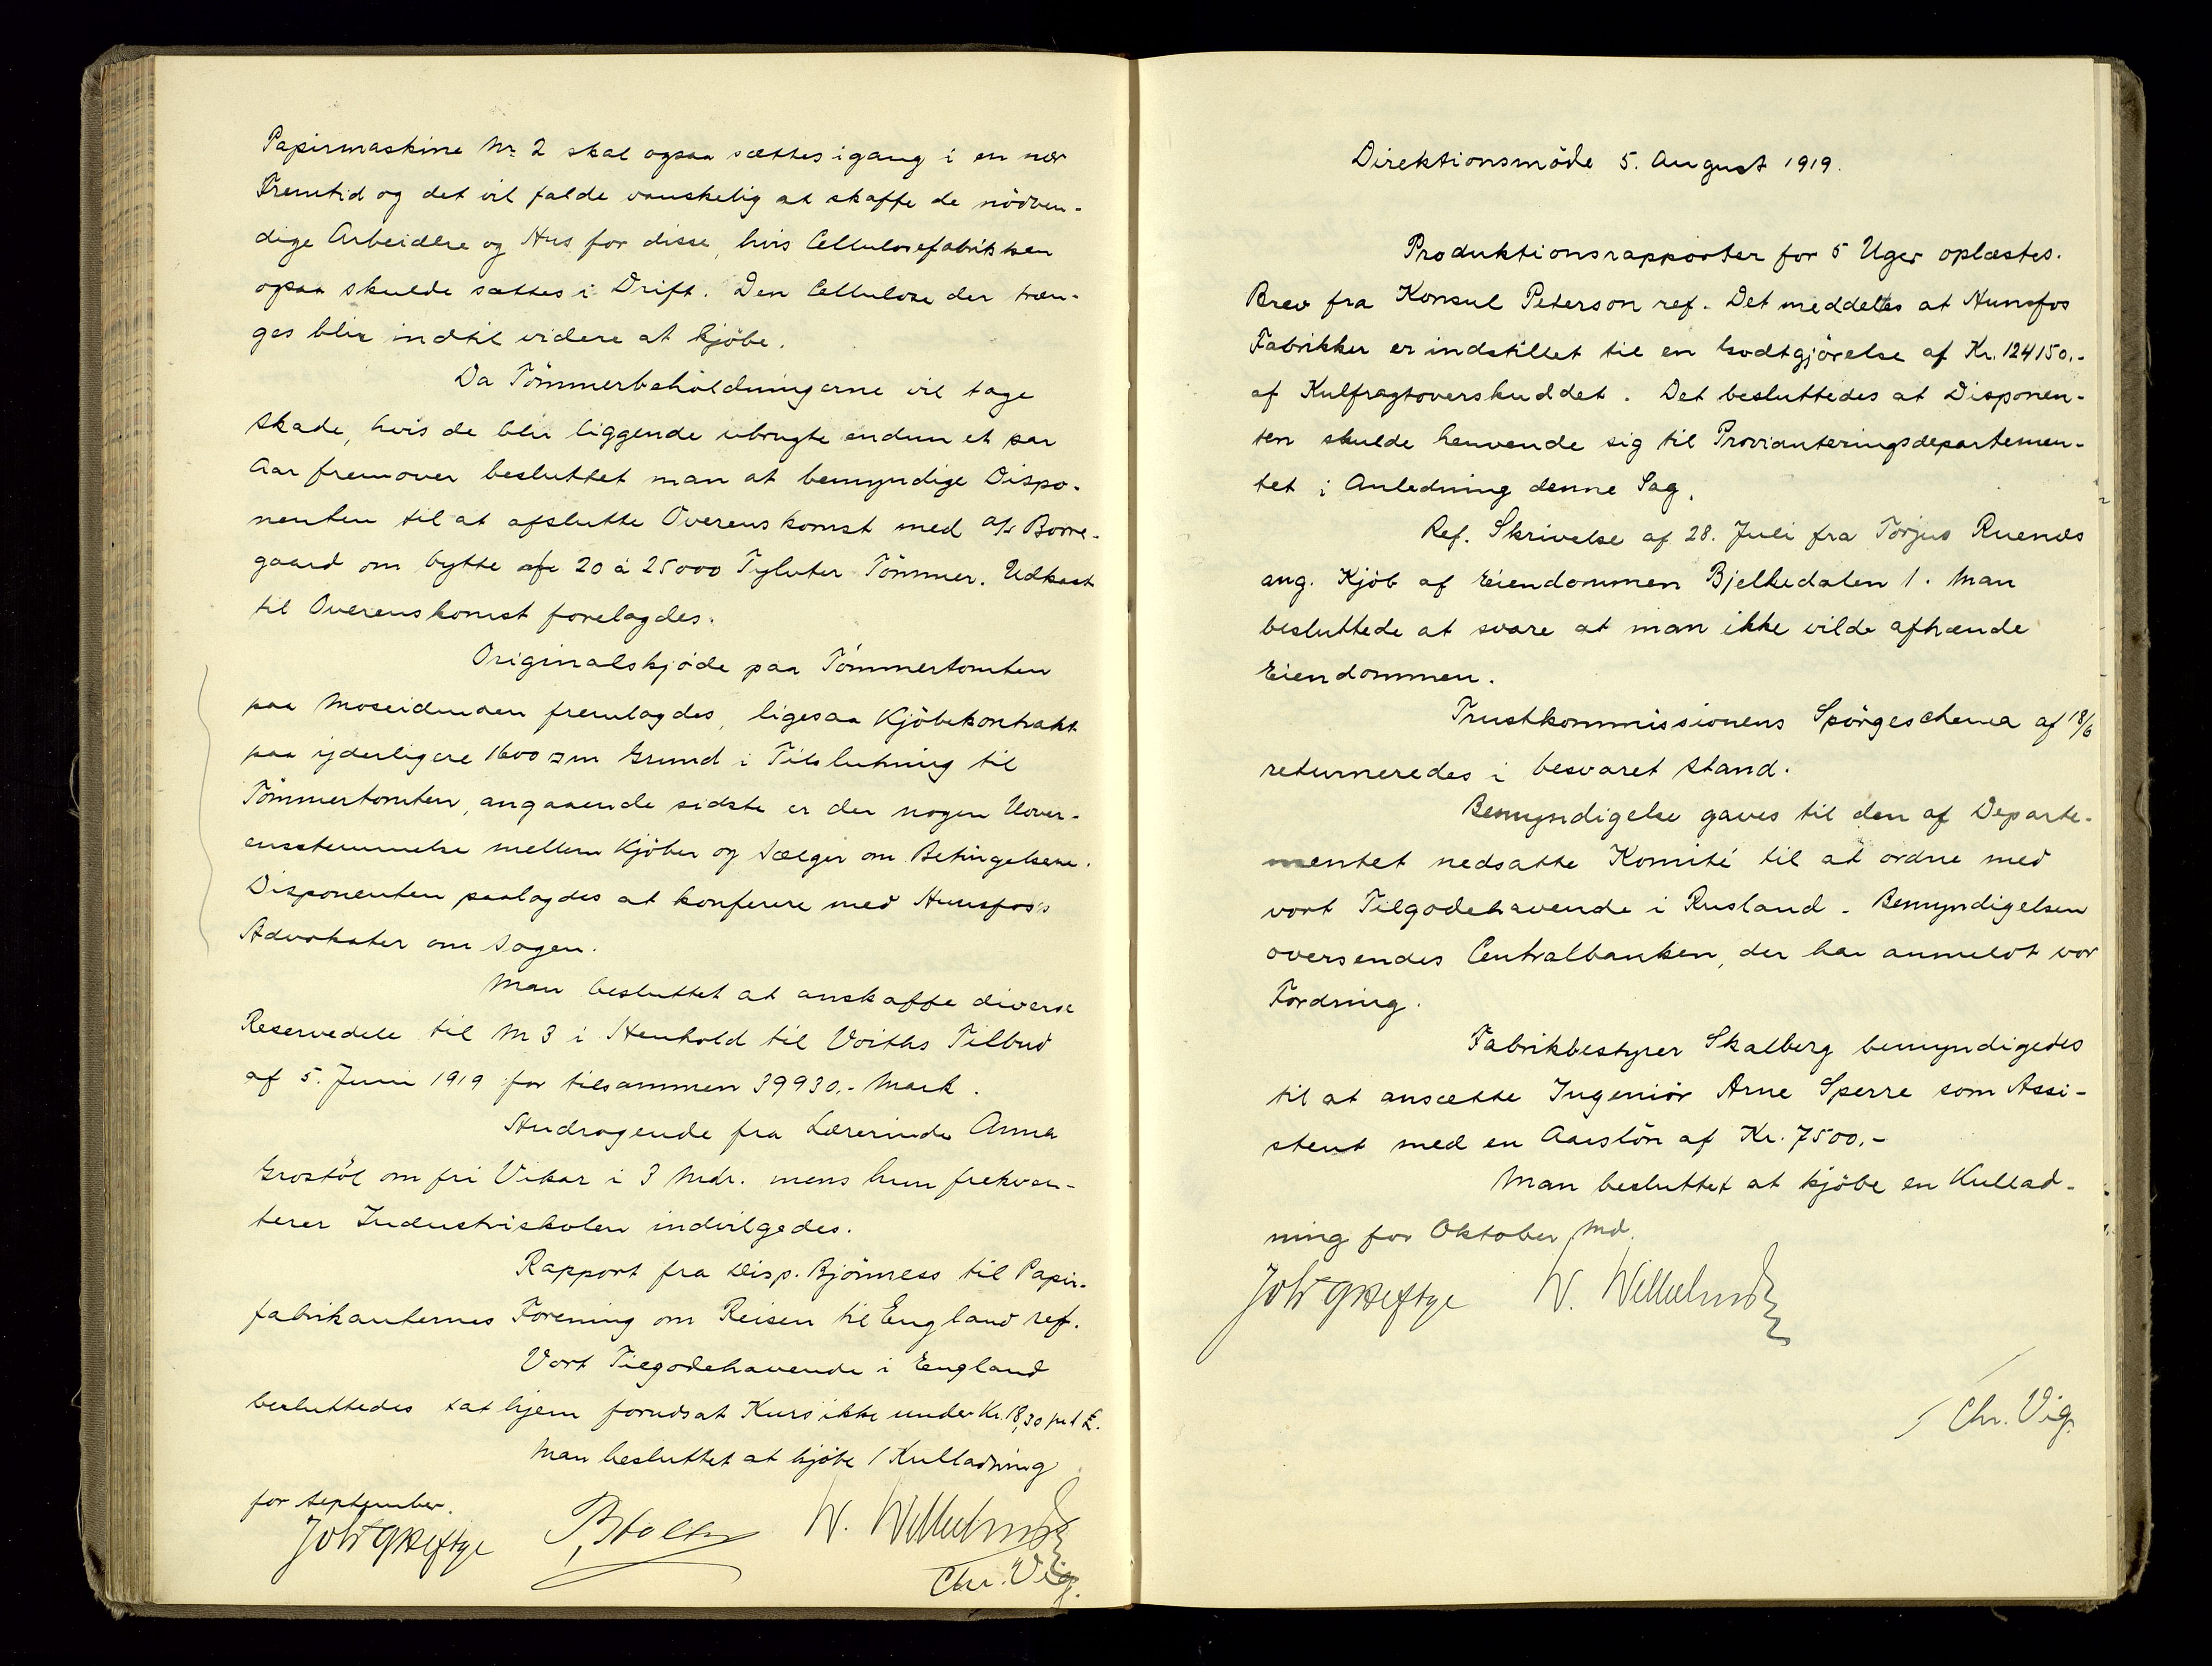 Papirmaskine Nr. 2 skal ogsaa sættes igang i en nær
Fremtid og det vil falde vanskelig at skaffe de nödven-
dige Arbeidere og Hus for disse, hvis Cellulosefabrikken
ogsaa skulde sættes i Drift. Den Cellulose der træn-
ges blir indtil videre at kjöbe.
Da Tömmerbeholdningerne vil tage
Skade, hvis de blir liggende ubrugte endnu et par
Aar fremover besluttet man at bemyndige Dispo-
nenten til at afslutte Overenskomst med A/S Borre-
gaard om bytte af 20 à 25000 Tylvter Tömmer. Udkast
til Overenskomst forelagdes.
Originalskjöde paa Tömmertomten
paa Moseidmoen fremlagdes, ligesaa Kjöbekontrakt
paa yderligere 1600 □m Grund i Tilslutning til
Tömmertomten, angaaende sidste er der nogen Uover-
ensstemmelse mellem Kjöber og Sælger om Betingelserne.
Disponenten paalagdes at konferere med Hunsfos's
Advokater om Sagen.
Man besluttet at anskaffe diverse
Reservedele til M 3 i Henhold til Voiths Tilbud
af 5. Juni 1919 for tilsammen 39930.- Mark.
Andragende fra Lærerinde Anna
Grostöl om fri Vikar i 3 Mdr. mens hun frekven-
terer Industriskolen indvilgedes.
Rapport fra Disp. Bjönness til Papir-
fabrikanternes Forening om Reisen til England ref.
Vort Tilgodehavende i England
besluttedes tat hjem forudsat Kurs ikke under Kr. 18,30 pr. 1 £.
Man besluttet at kjöbe 1 Kulladning
for September.
Joh Th Heftye W. Wilhelmsen
Chr. Vig.
Direktionsmöde 5. August 1919.
Produktionsrapporter for 5 Uger oplæstes.
Brev fra Konsul Peterson ref. Det meddeltes at Hunsfos
Fabrikker er indstillet til en Godtgjörelse af Kr. 124150.-
af Kulfragtoverskuddet. Det besluttedes at Disponen-
ten skulde henvende sig til Provianteringsdepartemen-
tet i Anledning denne Sag.
Ref. Skrivelse af 28. Juli fra Torjus Ruenæs
ang. Kjöb af Eiendommen Bjelkedalen 1. Man
besluttede at svare at man ikke vilde afhænde
Eiendommen.
Trustkommissionens Spörgeschema af 18/6
returneredes i besvaret Stand.
Bemyndigelse gaves til den af Departe-
mentet nedsatte Komité til at ordne med
vort Tilgodehavende i Rusland. Bemyndigelsen
oversendes Centralbanken, der har anmeldt vor
Fordring.
Fabrikbestyrer Skalberg bemyndigedes
til at ansætte Ingeniör Arne Sperre som Assi-
stent med en Aarslön af Kr. 7500.-
Man besluttet at kjöbe en Kullad-
ning for Oktober Md.
Joh Th Heftye W. Wilhelmsen
Chr. Vig.